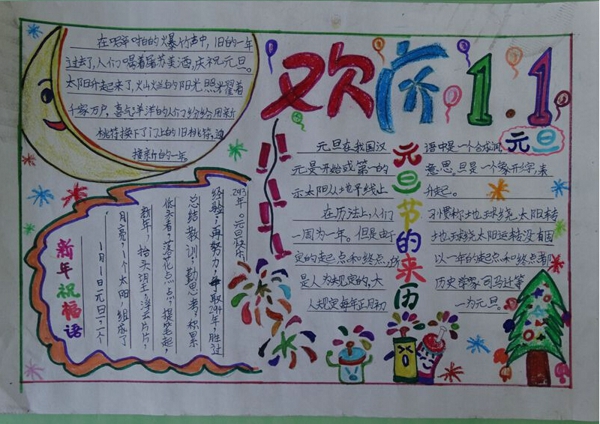 在噼啪啪的爆竹声中，旧的一年
过去了，人们喝着屠苏美酒，庆祝元旦。
太阳升起来了，的阳光照耀着
千家万户，喜气洋洋的人们纷纷用新
桃符接下了门上的旧桃符，迎
接新的一年
欢庆1.1
元旦
元旦节的来历
元旦在我国汉语中是一个合成词
元是开始或第一的意思，旦是一个象形字，表
示太阳从地平线上升起。
在历法上，人们习惯称地球绕太阳转
一周为一年。但是由于地球绕太阳运转没有固
定的起点和终点，所以一年的起点和终点都
是人为规定的，大历史学家司马迁等
人规定每年正月初一为元旦。
新年祝福语
1月1日元旦，一个
月亮，1个太阳，组成了
新年，抬头望，浮云片片，
低头看，落花点点，提笔起，
总结教训，勤思考，积累
经验，再努力，争取2014年，胜过
2013年。元旦快乐